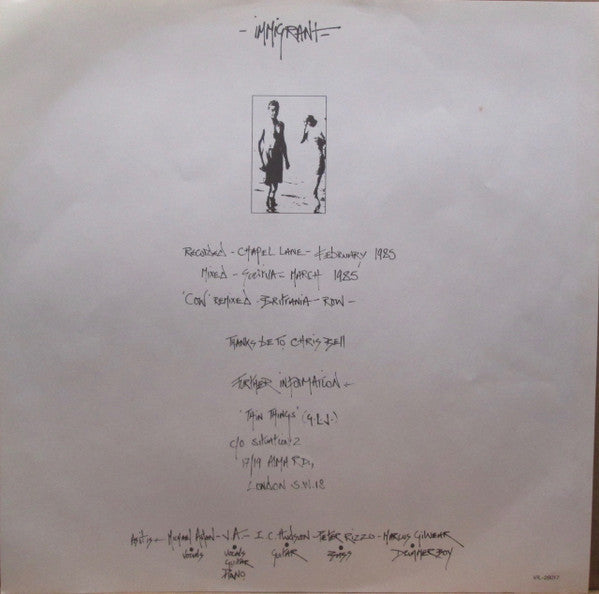 - immigrant -
Recorded - Chapel Lane - February 1985
Mixed - Guerilla - March 1985
'Cow' Remixed - Brittania - Row -
Thanks be to Chris Bell
Further information -
'Thin Things' (G.L.J.)
c/o Situation 2
17/19 Alma Rd.,
London S.W.18
As it is - Michael Aston - J.A. - I.C. Hudson - Peter Rizzo - Marcus Gilvear
Vocals Vocals Guitar Bass Drummer Boy
Guitar
Piano
VIL-28017